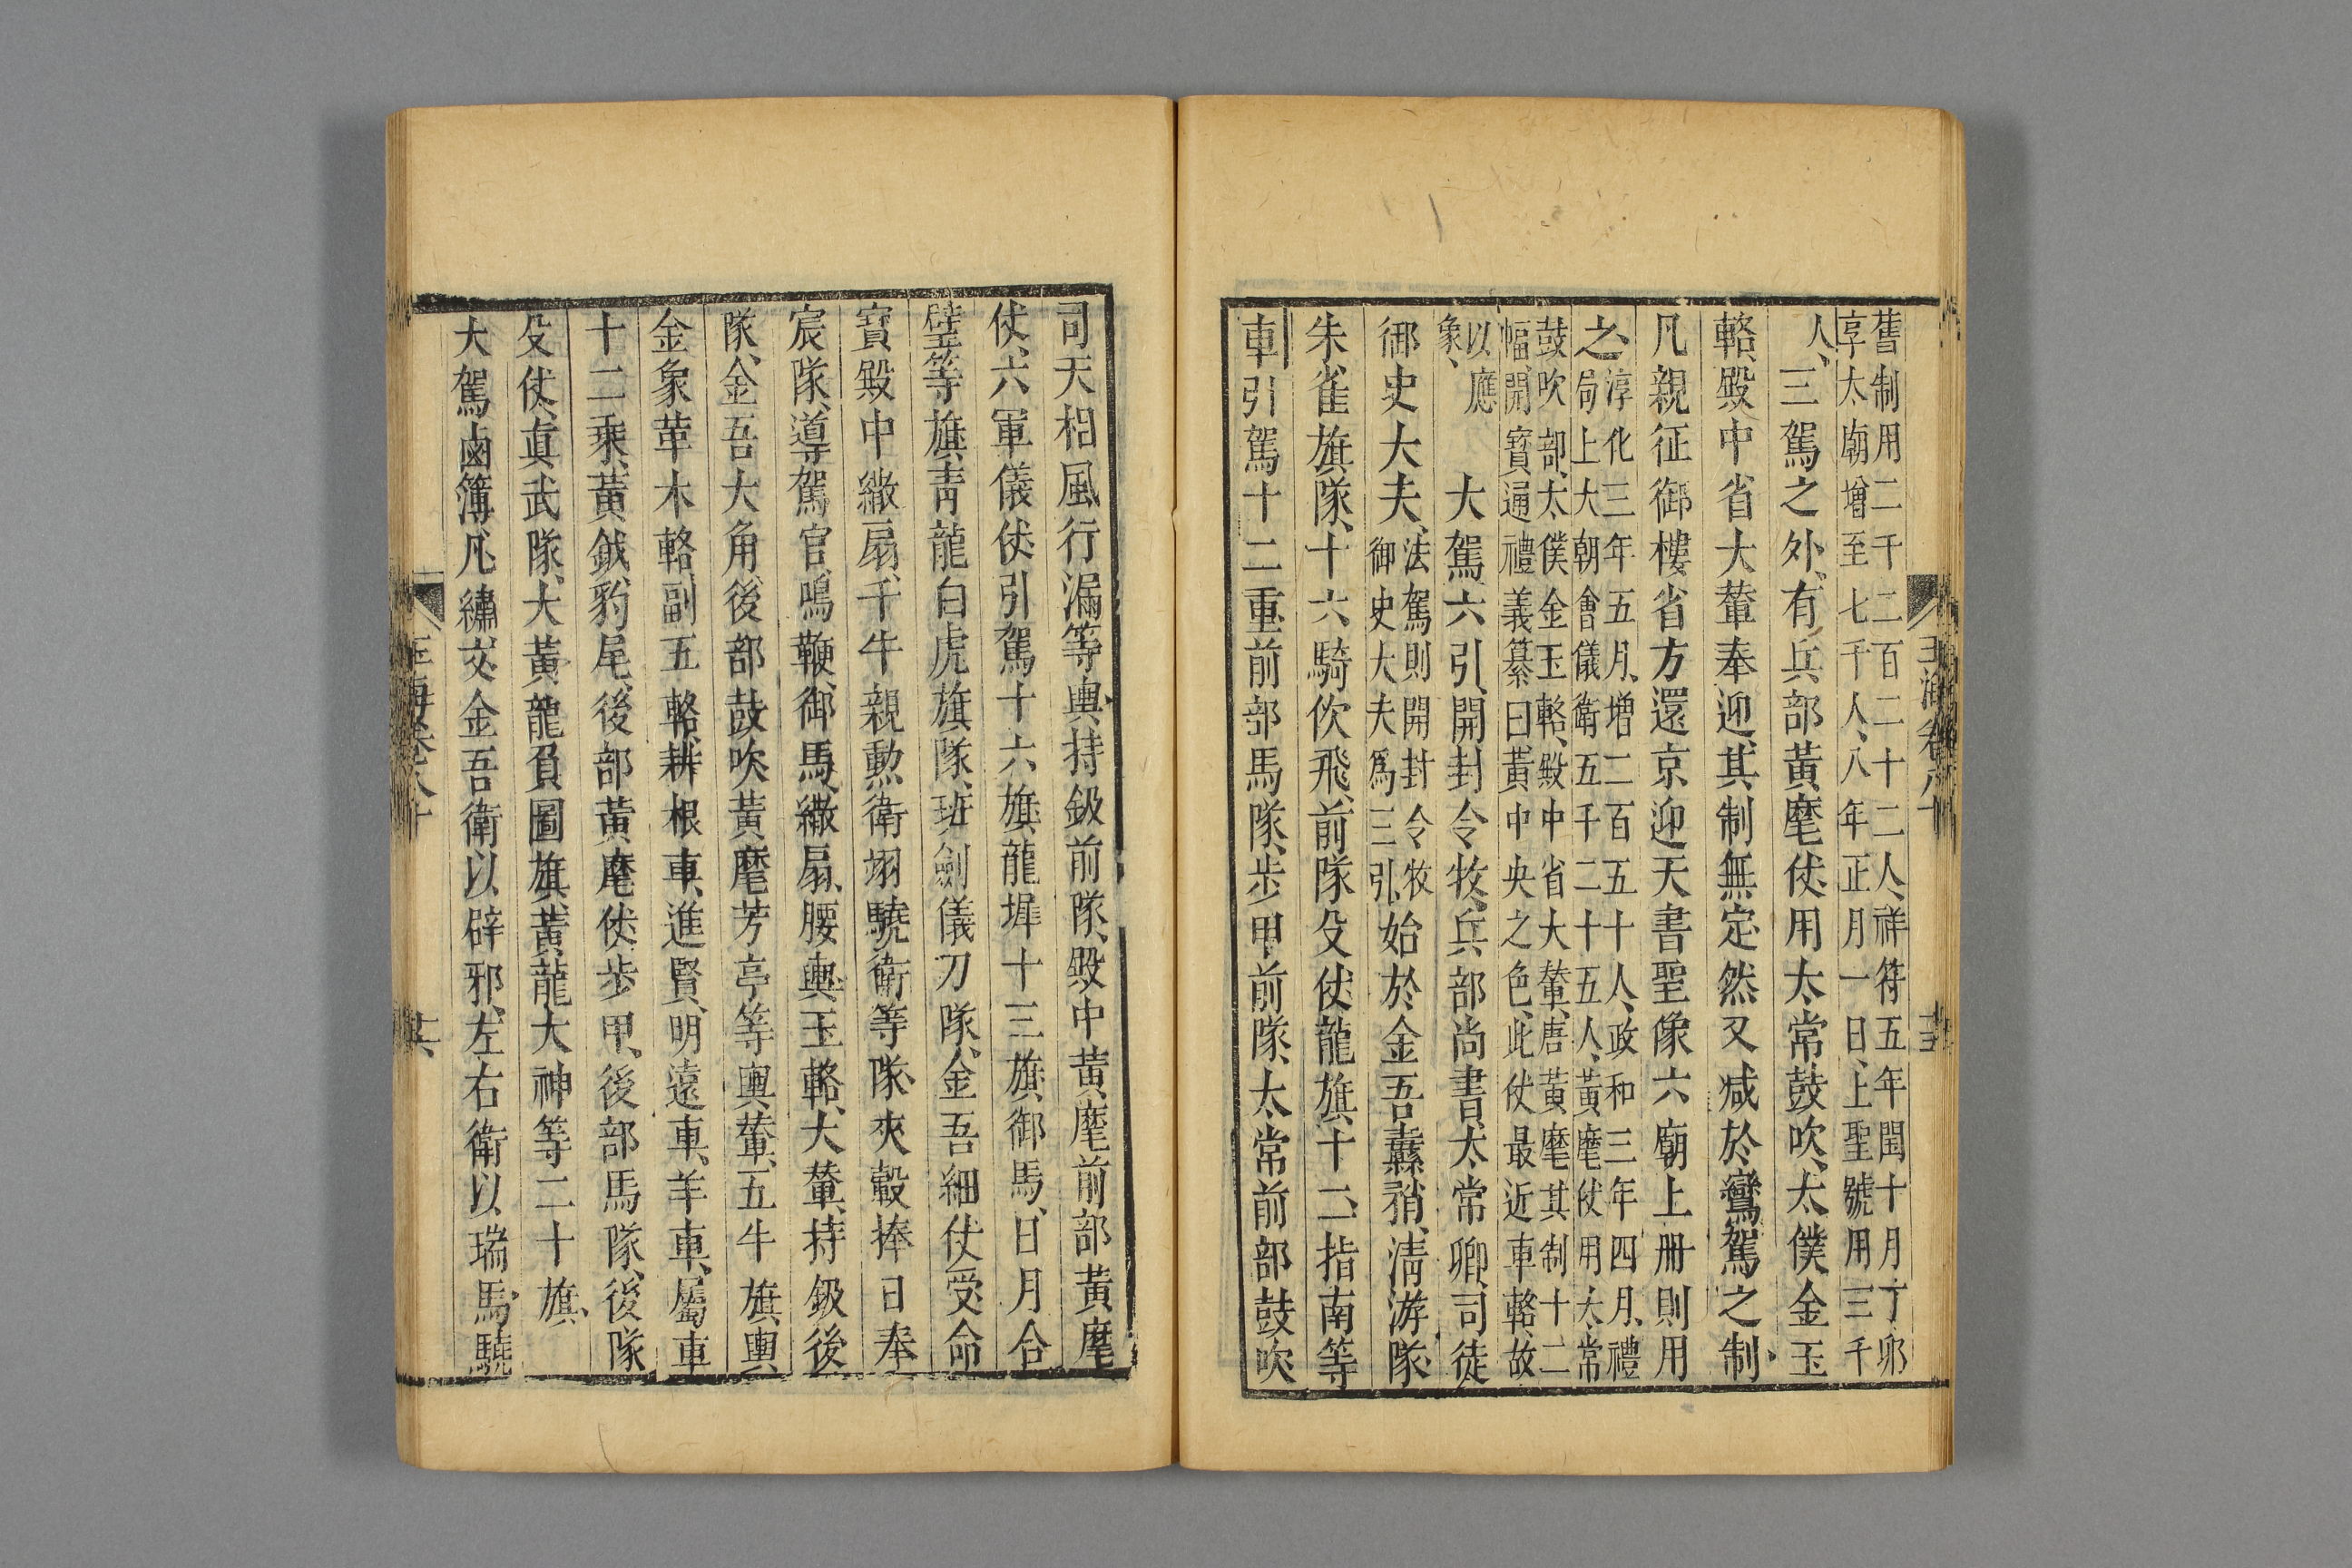 舊制用二千二百二十二人、祥符五年閏十月丁卯
享太廟增至七千人、八年正月一日、上聖號用三千
人、三駕之外、有兵部黃麾仗、用太常鼓吹、太僕金玉
輅、殿中省大輦奉迎、其制無定、然又減於鸞駕之制、
凡親征御樓省方還京迎天書聖像六廟上冊則用
之、
淳化三年五月、增二百五十人、政和三年四月、禮
局上大朝會儀衛五千二十五人、黃麾仗用太常
鼓吹部、太僕金玉輅、殿中省大輦、唐黃麾其制十二
幅、開寶通禮義纂曰黃中央之色、此仗最近車輅、故
以應
象、
大駕六引、開封令牧、兵部尚書、太常卿、司徒
御史大夫、
法駕則開封令牧
御史大夫爲三引、
始於金吾纛矟、清游隊、
朱雀旗隊、十六騎佽飛、前隊殳仗、龍旗十二、指南等
車引駕十二重前部馬隊、步甲前隊、太常前部鼓吹、
玉海卷八十
司天相風行漏等輿、持鈒前隊、殿中黃麾前部黃麾
仗、六軍儀仗、引駕十六旗、龍墀十三旗、御馬、日月合
璧等旗、青龍白虎旗隊、班劍儀刀隊、金吾細仗、受命
寶、殿中繖扇、千牛親勲衛翊驍衛等隊、夾轂捧日奉
宸隊、導駕官、鳴鞭、御馬、繖扇、腰輿、玉輅、大輦、持鈒後
隊、金吾大角、後部鼓吹、黃麾芳亭等輿輦、五牛旗輿
金象革木輅、副五輅、耕根車、進賢、明遠車、羊車、屬車
十二乘、黃鉞、豹尾、後部黃麾仗、步甲、後部馬隊、後隊
殳仗、真武隊、大黃龍負圖旗、黃龍大神等二十旗、
大駕鹵簿、凡繡文金吾衛以辟邪、左右衛以瑞馬、驍
玉海卷八十